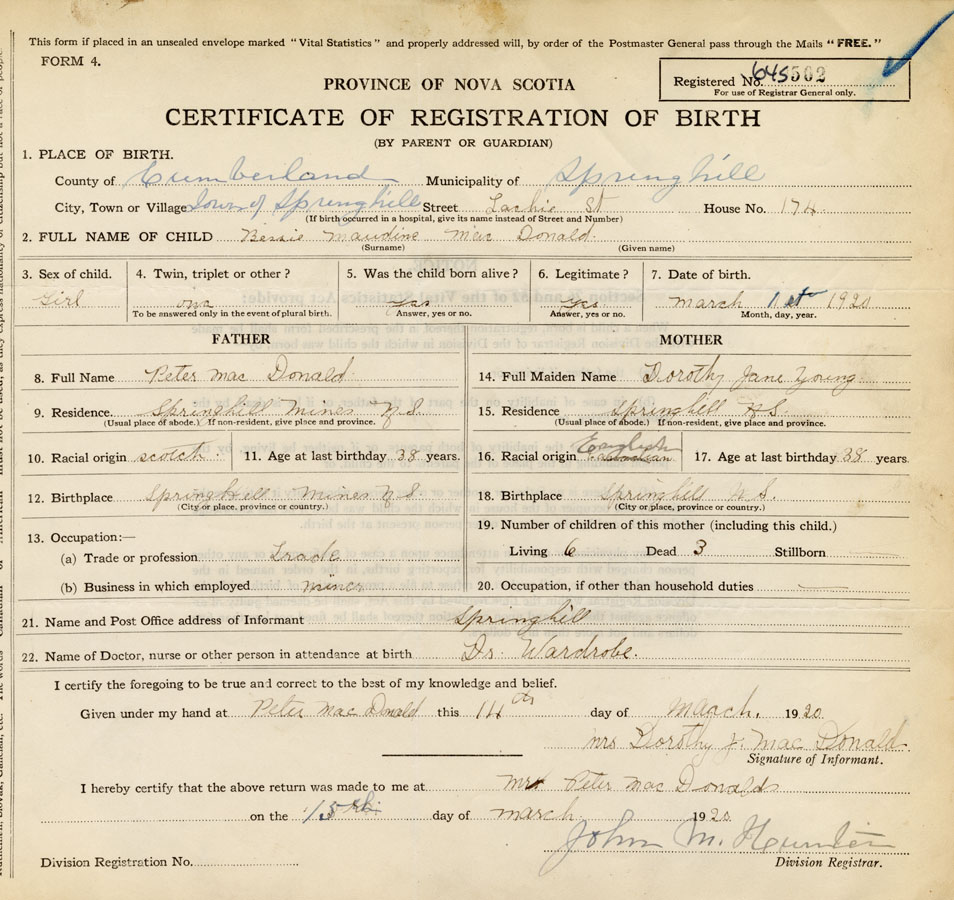 This form if placed in an unsealed envelope marked "Vital Statistics" and properly addressed will, by order of the Postmaster General pass through the Mails "FREE."
FORM 4.
Registered No. 645502
For use of Registrar General only.
PROVINCE OF NOVA SCOTIA
CERTIFICATE OF REGISTRATION OF BIRTH
(BY PARENT OR GUARDIAN)
1. PLACE OF BIRTH.
County of Cumberland Municipality of Springhill
City, Town or Village Town of Springhill Street Lachie St House No. 174
(If birth occurred in a hospital, give its name instead of Street and Number)
2. FULL NAME OF CHILD Bessie Maudine Mac Donald
(Surname) (Given name)
3. Sex of child. 4. Twin, triplet or other? 5. Was the child born alive? 6. Legitimate? 7. Date of birth.
Girl one yes yes March 1st 1920
To be answered only in the event of plural birth. Answer, yes or no. Answer, yes or no. Month, day, year.
FATHER MOTHER
8. Full Name Peter Mac Donald 14. Full Maiden Name Dorothy Jane Young
9. Residence. Springhill Mines N.S. 15. Residence Springhill N.S.
(Usual place of abode.) If non-resident, give place and province. (Usual place of abode.) If non-resident, give place and province.
10. Racial origin scotch 11. Age at last birthday 38 years. 16. Racial origin English 17. Age at last birthday 38 years.
12. Birthplace Springhill Mines N.S. 18. Birthplace Springhill N.S.
(City or place, province or country.) (City or place, province or country.)
13. Occupation:— 19. Number of children of this mother (including this child.)
(a) Trade or profession Trade Living 6 Dead 3 Stillborn
(b) Business in which employed miner 20. Occupation, if other than household duties
21. Name and Post Office address of Informant Springhill
22. Name of Doctor, nurse or other person in attendance at birth Dr. Wardrobe.
I certify the foregoing to be true and correct to the best of my knowledge and belief.
Given under my hand at Peter Mac Donald this 14th day of March, 1920
mrs Dorothy J. Mac Donald
Signature of Informant.
I hereby certify that the above return was made to me at Mrs Peter Mac Donalds
on the 15th day of march 1920
John M. Hunter
Division Registrar.
Division Registration No.